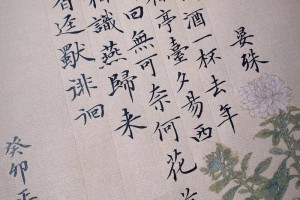 晏殊
酒一杯去年
亭臺夕易西
無可奈何花
識燕歸来
獣徘徊
癸卯